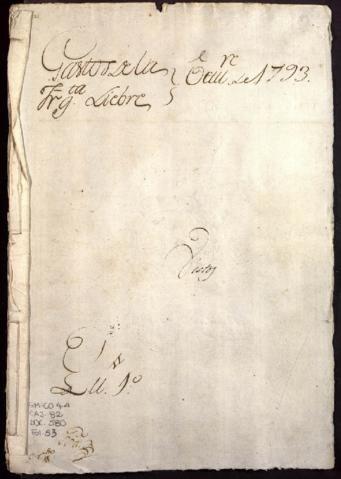 Gastos de la
Frg.ta Liebre
Octu.re de 1793.
Vistos
L
N. 1.º
GM-CO 4-A
CAJ. 82
DOC. 580
FOL. 53